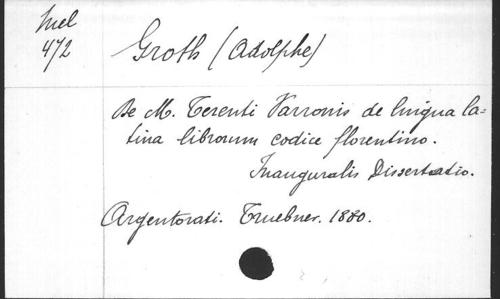 Mel
472
Groth (Adolphe)
De M. Terenti Varronis de lingua la=
tina librorum codice florentino.
Inauguralis Dissertatio.
Argentorati. Truebner. 1880.